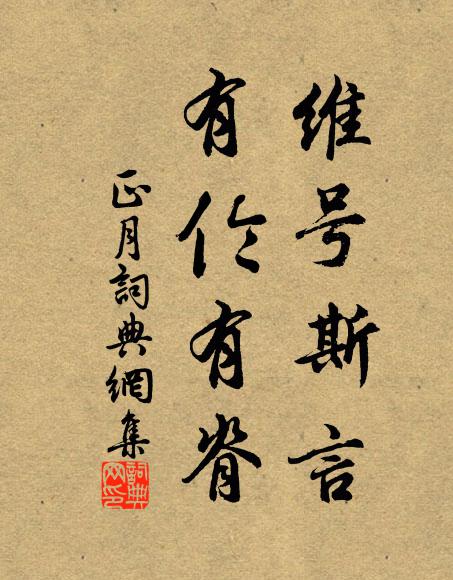 维号斯言
有伦有脊
正月詞典網集
詞典网印